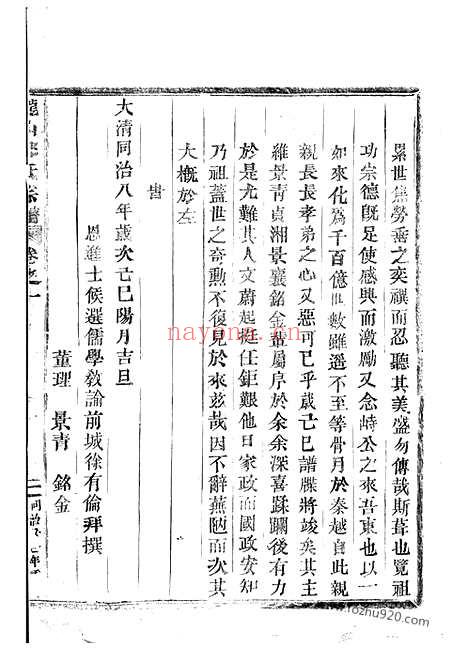 累世焦勞垂之奕禩而忍聽其美盛勿傳哉斯葺也覽祖
功宗德既足使感興而激勵又念峙公之來吾東也以一
如來化為千百億世數雖遥不至等骨月於秦越自此親
親長長孝弟之心又惡可已乎歲己巳譜牒將竣矣其主
維景青貞湘景襄銘金輩屬序於余余深喜蹂躙後有力
於是尤難其人文蔚起肩任鉅艱他日家政而國政安知
乃祖蓋世之奇勳不復見於來兹哉因不辭蕪陋而次其
大概於左
時
大清同治八年歲次己巳陽月吉旦
恩進士候選儒學敎諭前城徐有倫拜撰
董理 景青 銘金
宗譜 卷之一
二
同治
nayona.cn
www.foldbook.com